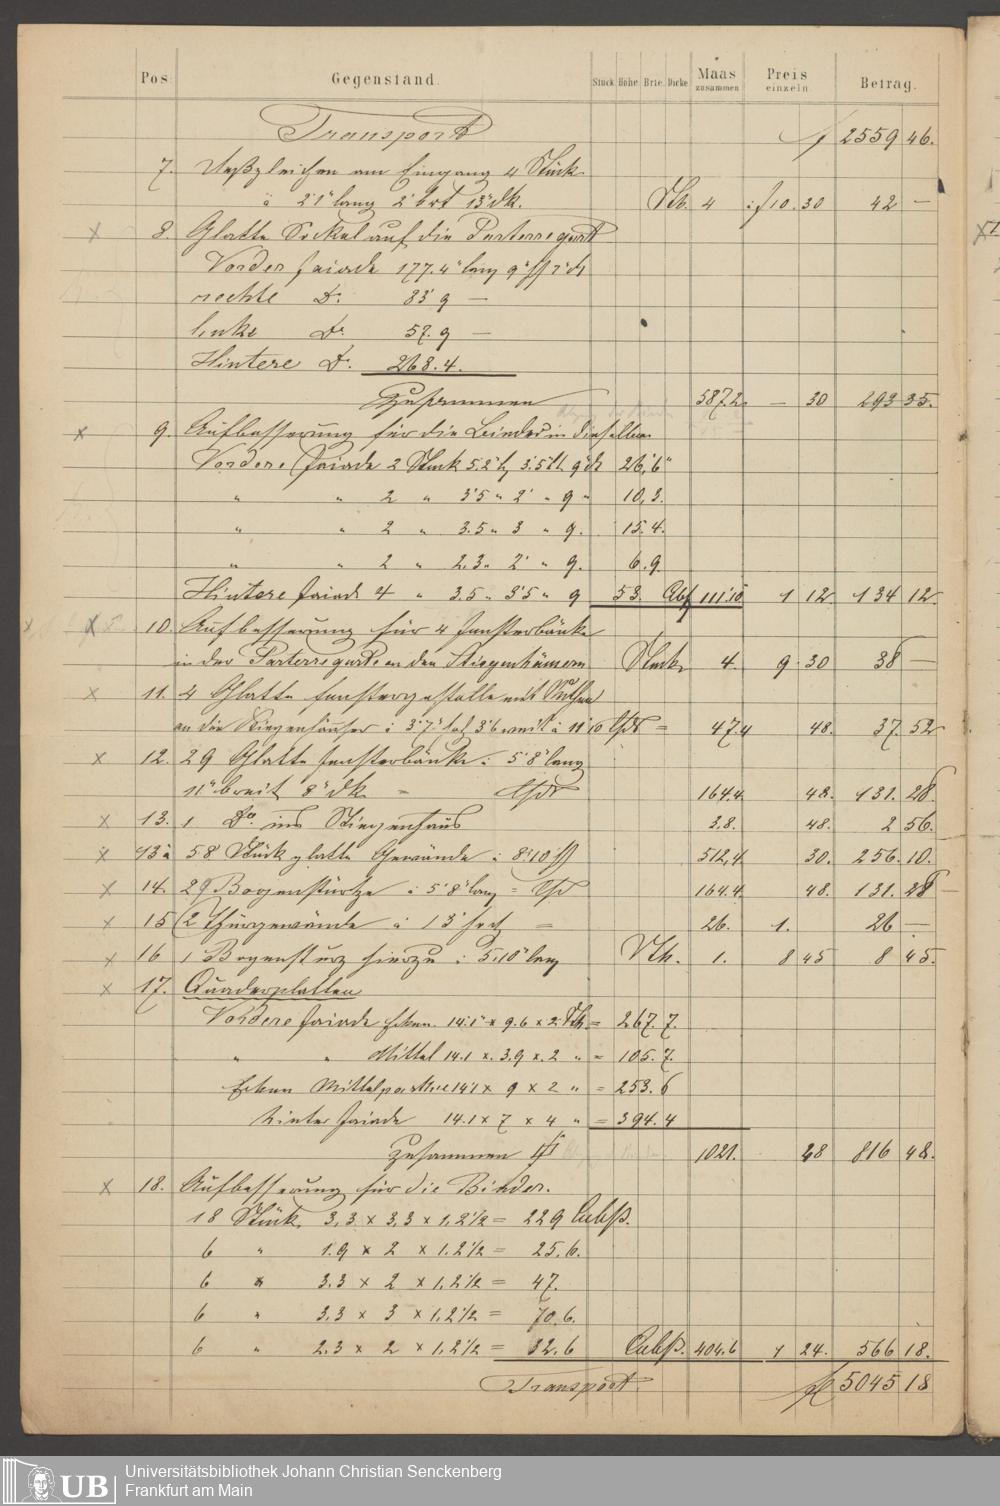 Pos. Gegenstand. Stück Höhe Brte. Dicke Maas zusammen Preis einzeln. Betrag.
Transport f 2559 46.
7. Deßgleichen am Eingang 4 Stück
à 2'1" lang 2' brt 13" dk. Stk. 4 à f 10. 30 42 —
8. Glatte Sockel auf die Parterre
Vorder faiade 177.4" lang 9"
rechte Do. 83' 9 —
linke Do. 57. 9 —
Hintere Do. 268. 4.
Zusammen 587.2. — 30 293 35.
9. Aufbesserung für die Binder in dieselben
Vordere faiade 2 Stück 5.2 3.5 9" 26'.6"
" " 2 " 3'5 " 2' " 9 " 10. 3.
" " 2 " 3.5 " 3 " 9. 15. 4.
" " 2 " 2.3. " 2' " 9. 6. 9.
Hintere faiade 4 " 3.5 " 3'5 " 9 53. Cbf 111'.10 1 12 134 12.
10. Aufbesserung für 4 Fensterbänke
in der Parterre an den Stiegenhäusern Stück 4. 9. 30 38 —
11. 4 Glatte Fenstergestelle mit
an die Stiegenhäuser à 3'7" 3'6 weit à 11'10 = 47.4 48. 37. 52
12. 29 Glatte Fensterbänke à 5'8" lang
11" breit 8" dk = 164.4. 48. 131. 28.
13. 1 Do. ins Stiegenhaus 3.8. 48. 2 56.
13 a 58 Stück glatte Gewände à 8'10" 512,4 30. 256. 10.
14. 29 Bogenstürtze à 5'8" lang = 164.4. 48. 131. 28
15 2 Thürgewände à 13' hoch = 26. 1. 26 —
16 1 Bogensturz hierzu à 5,10" lang Stk. 1. 8 45 8 45.
17. Quaderplatten
Vordere faiade Ecken 14'.1" x 9.6 x 2 Stk = 267. 7.
" " Mittel 14.1 x 3.9 x 2 " = 105. 7.
Ecken Mittelparthie 14'1 x 9 x 2 " = 253. 6
Hinter faiade 14.1 x 7 x 4 " = 394. 4
Zusammen 1021. 48 816 48.
18. Aufbesserung für die Binder.
18 Stück 3,3 x 3,3 x 1,2 1/2 = 229 Cubß.
6 " 1.9 x 2 x 1.2 1/2 = 25. 6.
6 " 3.3 x 2 x 1,2 1/2 = 47.
6 " 3,3 x 3 x 1,2 1/2 = 70. 6.
6 " 2.3 x 2 x 1,2 1/2 = 32. 6 Cubß. 404.6 1 24. 566 18.
Transport. fl 5045 18
UB Universitätsbibliothek Johann Christian Senckenberg
Frankfurt am Main